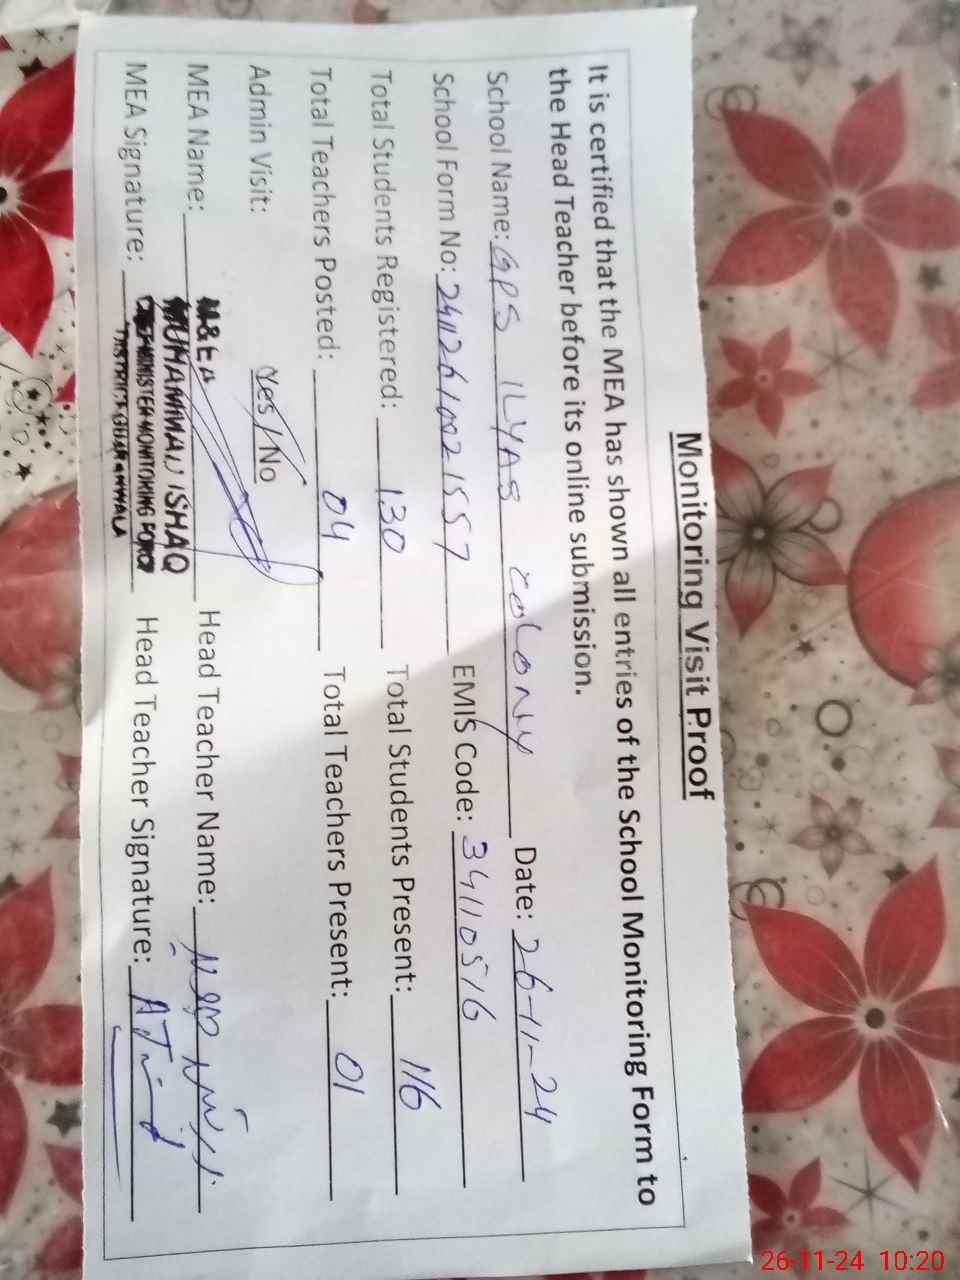 Monitoring Visit Proof
It is certified that the MEA has shown all entries of the School Monitoring Form to
the Head Teacher before its online submission.
School Name: GPS ILYAS COLONY Date: 26-11-24
School Form No: 24112610021557 EMIS Code: 34110516
Total Students Registered: 130 Total Students Present: 116
Total Teachers Posted: 04 Total Teachers Present: 01
Admin Visit: Yes / No
MEA Name: Head Teacher Name:
M&EA
MUHAMMAD ISHAQ
MEA Signature: Head Teacher Signature:
CHIEF MINISTER MONITORING FORCE
DISTRICT GUJRANWALA
26-11-24 10:20